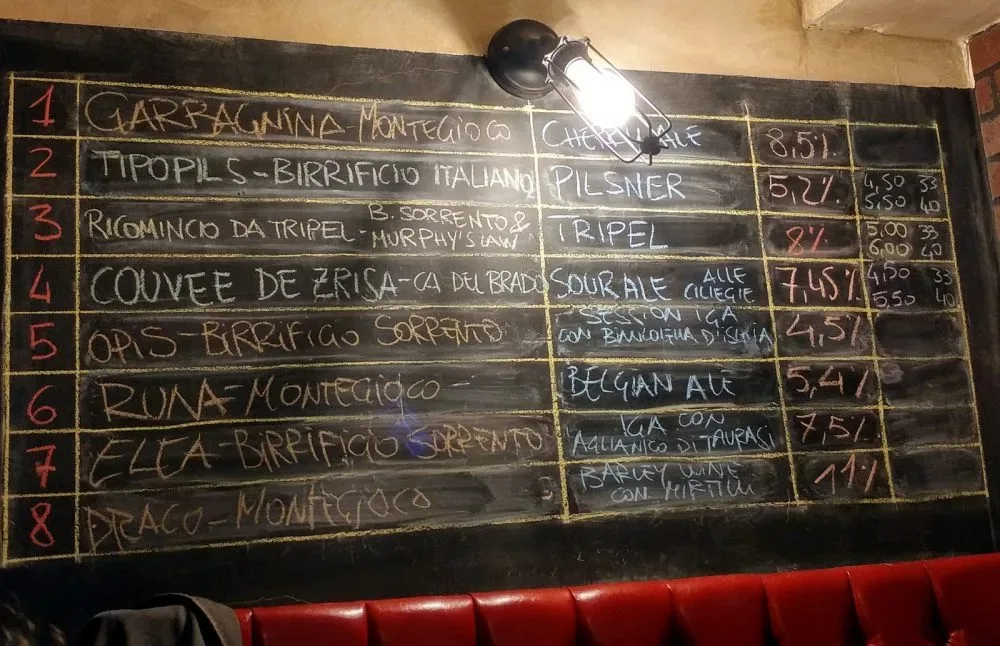 1 GARBAGNINA - MONTEGIOCO CHERRY ALE 8,5%
2 TIPOPILS - BIRRIFICIO ITALIANO PILSNER 5,2% 4,50 33
5,50 40
3 RICOMINCIO DA TRIPEL - B. SORRENTO & MURPHY'S LAW TRIPEL 8% 5,00 33
6,00 40
4 COUVEE DE ZRISA - CA DEL BRADO SOUR ALE ALLE CILIEGIE 7,45% 4,50 33
5,50 40
5 OPIS - BIRRIFICIO SORRENTO SESSION IGA
CON BIANCOLELLA D'ISCHIA 4,5%
6 RUNA - MONTEGIOCO - BELGIAN ALE 5,4%
7 ELEA - BIRRIFICIO SORRENTO IGA CON
AGLIANICO DI TAURASI 7,5%
8 DRACO - MONTEGIOCO BARLEY WINE
CON MIRTILLI 11%